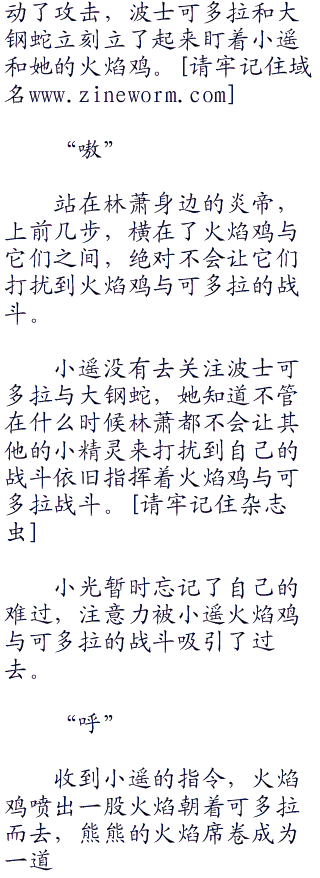 动了攻击，波士可多拉和大
钢蛇立刻立了起来盯着小遥
和她的火焰鸡。[请牢记住域
名www.zineworm.com]
“嗷”
站在林萧身边的炎帝，
上前几步，横在了火焰鸡与
它们之间，绝对不会让它们
打扰到火焰鸡与可多拉的战
斗。
小遥没有去关注波士可
多拉与大钢蛇，她知道不管
在什么时候林萧都不会让其
他的小精灵来打扰到自己的
战斗依旧指挥着火焰鸡与可
多拉战斗。[请牢记住杂志
虫]
小光暂时忘记了自己的
难过，注意力被小遥火焰鸡
与可多拉的战斗吸引了过
去。
“呼”
收到小遥的指令，火焰
鸡喷出一股火焰朝着可多拉
而去，熊熊的火焰席卷成为
一道